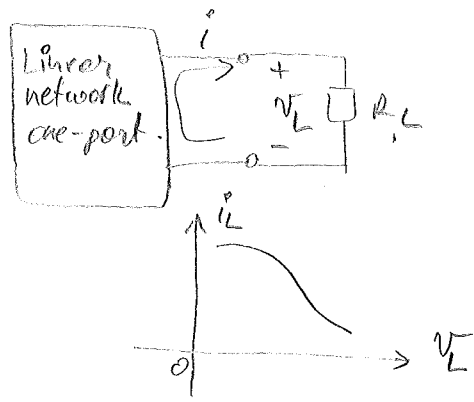 i
Linear
network
one-port.
+
v_L
-
R_L
i_L
0
v_L